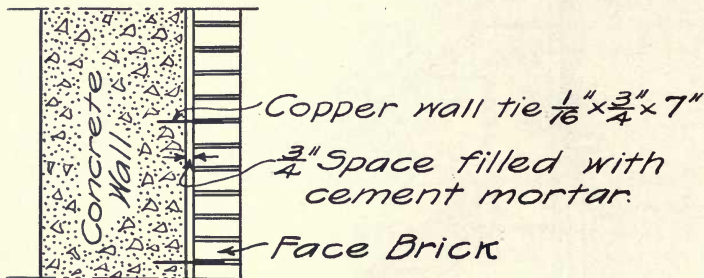 Concrete
Wall
Copper wall tie 1/16" x 3/4" x 7"
3/4" Space filled with
cement mortar.
Face Brick